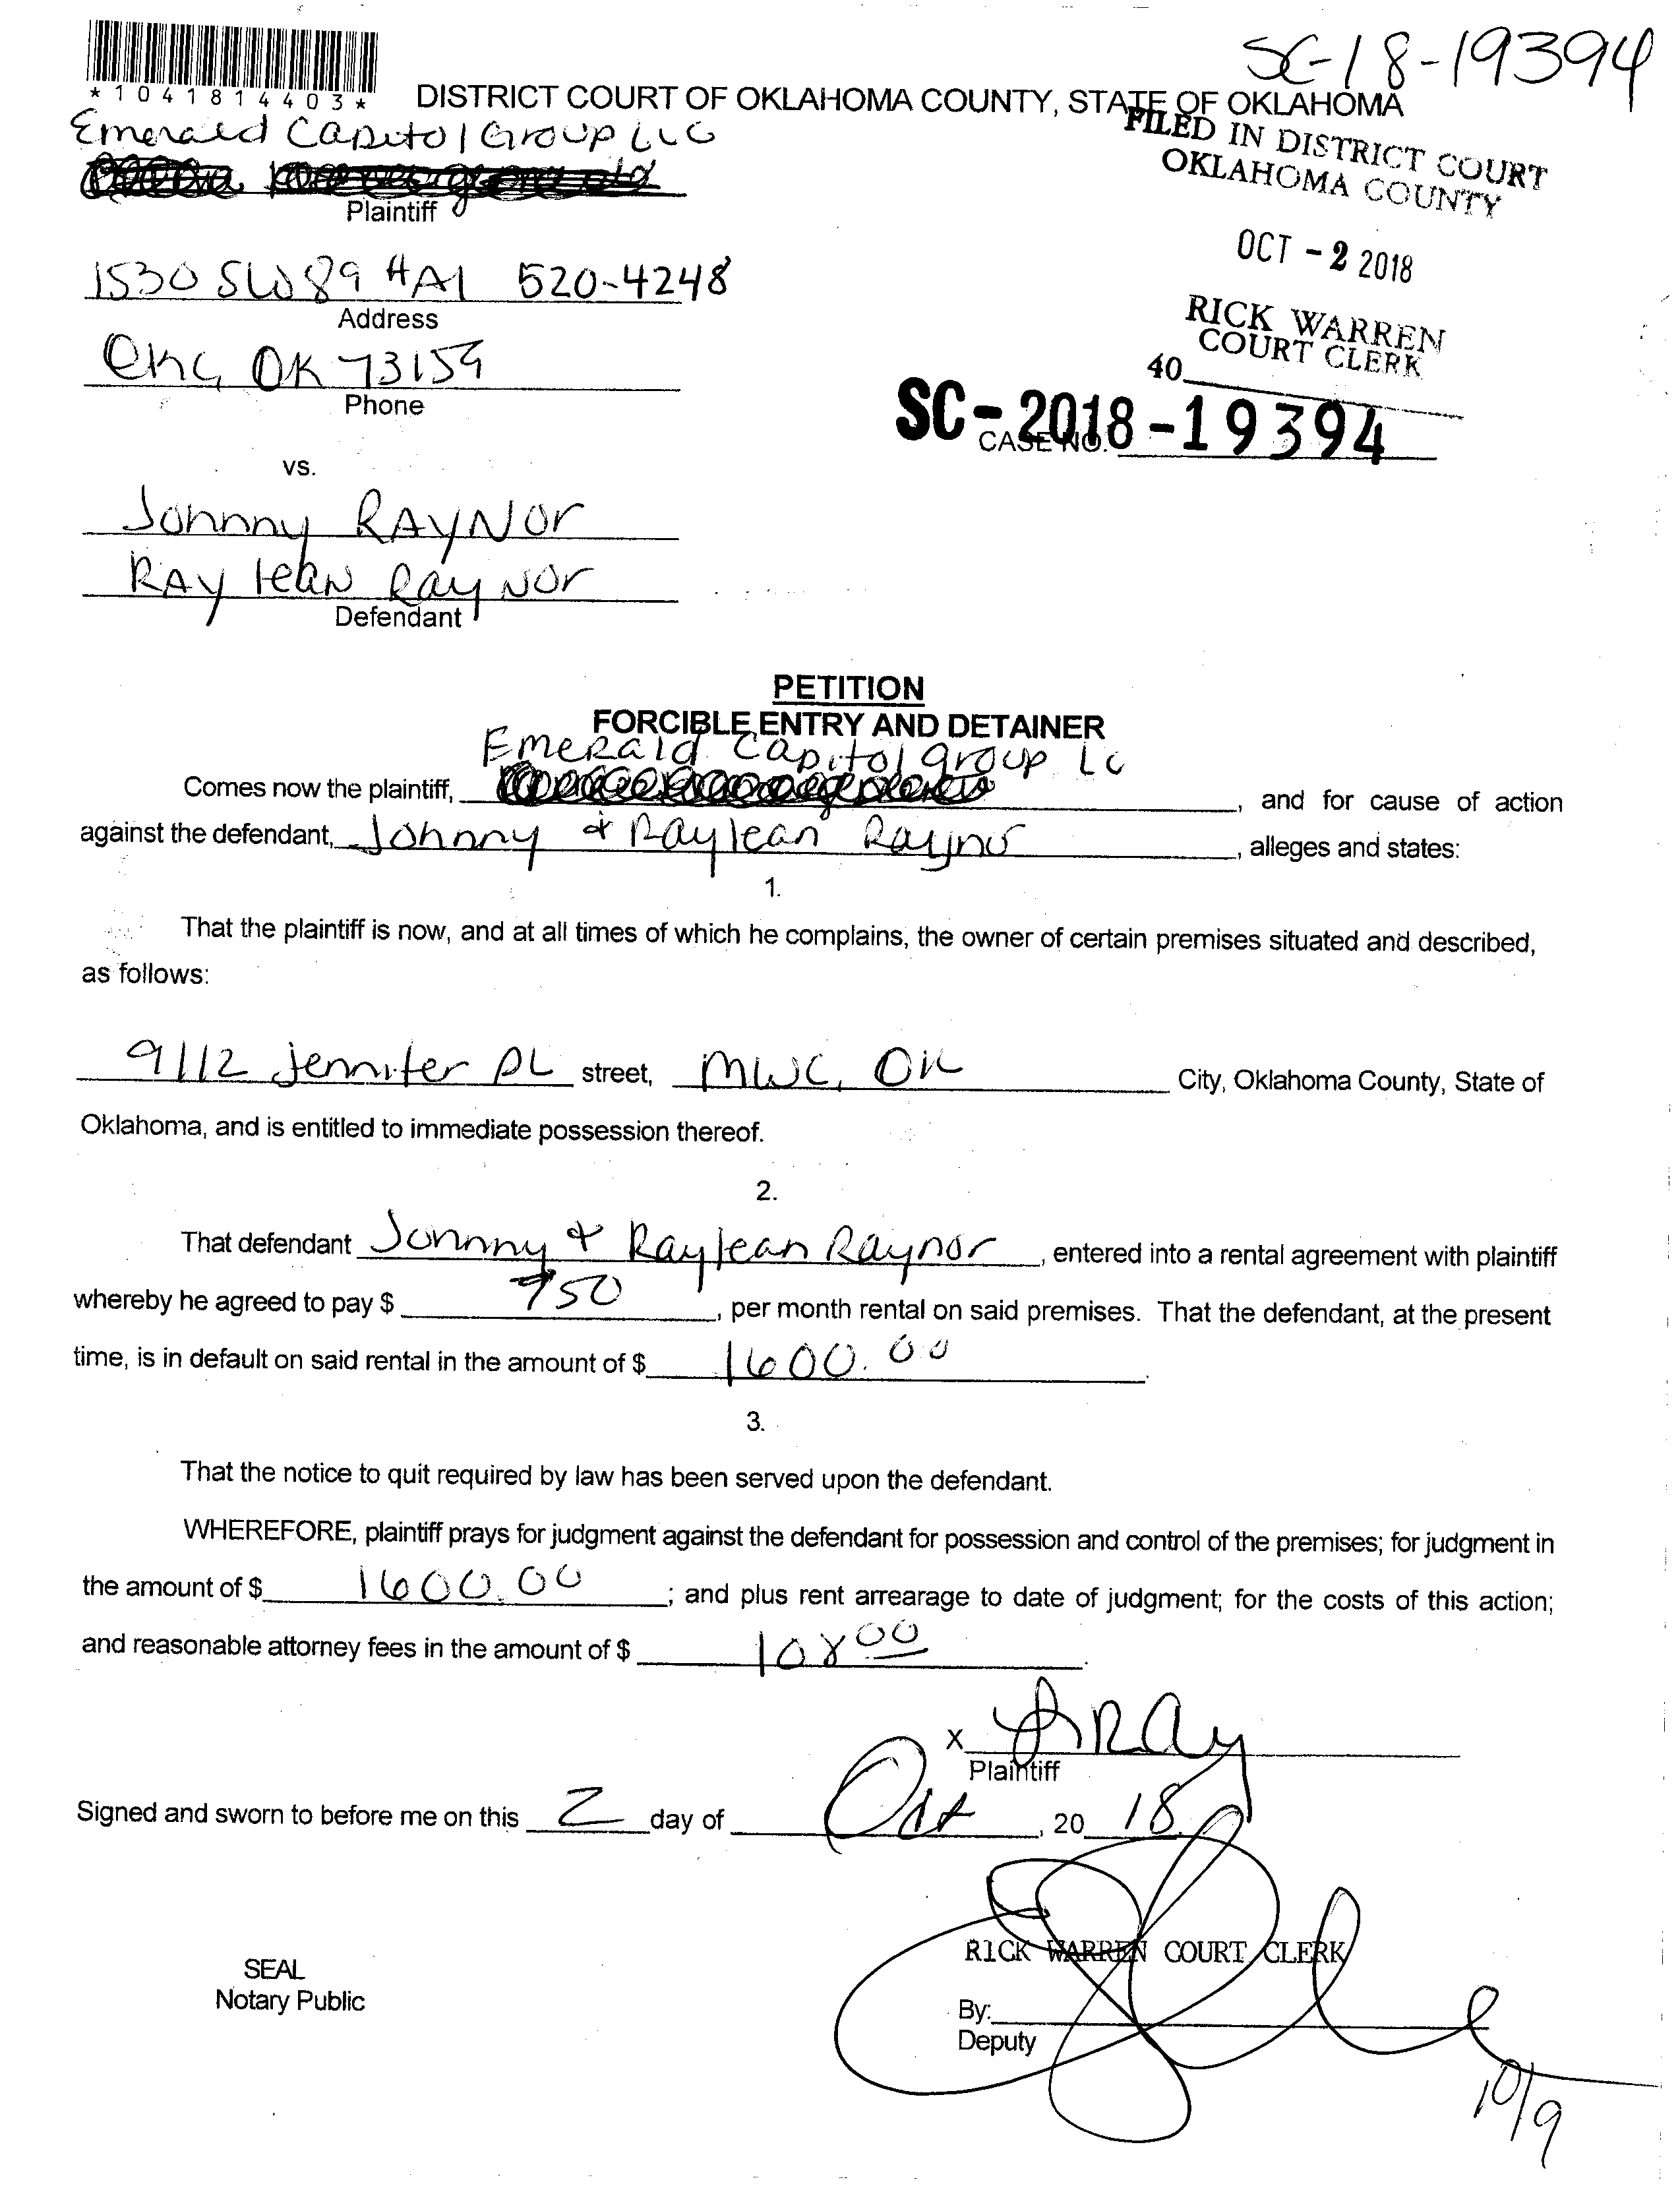 SC-18-19394
*1041814403*
DISTRICT COURT OF OKLAHOMA COUNTY, STATE OF OKLAHOMA
Emerald Capitol Group LLC
Plaintiff
FILED IN DISTRICT COURT
OKLAHOMA COUNTY
OCT -2 2018
RICK WARREN
COURT CLERK
40
1530 SW 89 #A1 520-4248
Address
OKC, OK 73159
Phone
SC-2018-19394
CASE NO.
vs.
Johnny RAYNOr
RAY lean RayNor
Defendant
PETITION
FORCIBLE ENTRY AND DETAINER
Emerald Capitol group Lc
Comes now the plaintiff, , and for cause of action
against the defendant, Johnny & Raylean Raynor, alleges and states:
1.
That the plaintiff is now, and at all times of which he complains, the owner of certain premises situated and described,
as follows:
9112 Jennifer PL street, MWC, OK City, Oklahoma County, State of
Oklahoma, and is entitled to immediate possession thereof.
2.
That defendant Johnny & Raylean Raynor, entered into a rental agreement with plaintiff
whereby he agreed to pay $ , per month rental on said premises. That the defendant, at the present
time, is in default on said rental in the amount of $ 1600.00.
3.
That the notice to quit required by law has been served upon the defendant.
WHEREFORE, plaintiff prays for judgment against the defendant for possession and control of the premises; for judgment in
the amount of $ 1600.00; and plus rent arrearage to date of judgment; for the costs of this action;
and reasonable attorney fees in the amount of $ 108 00.
X
Plaintiff
Signed and sworn to before me on this 2 day of Oct, 20 18
RICK WARREN COURT CLERK
SEAL
Notary Public
By:
Deputy
10/9